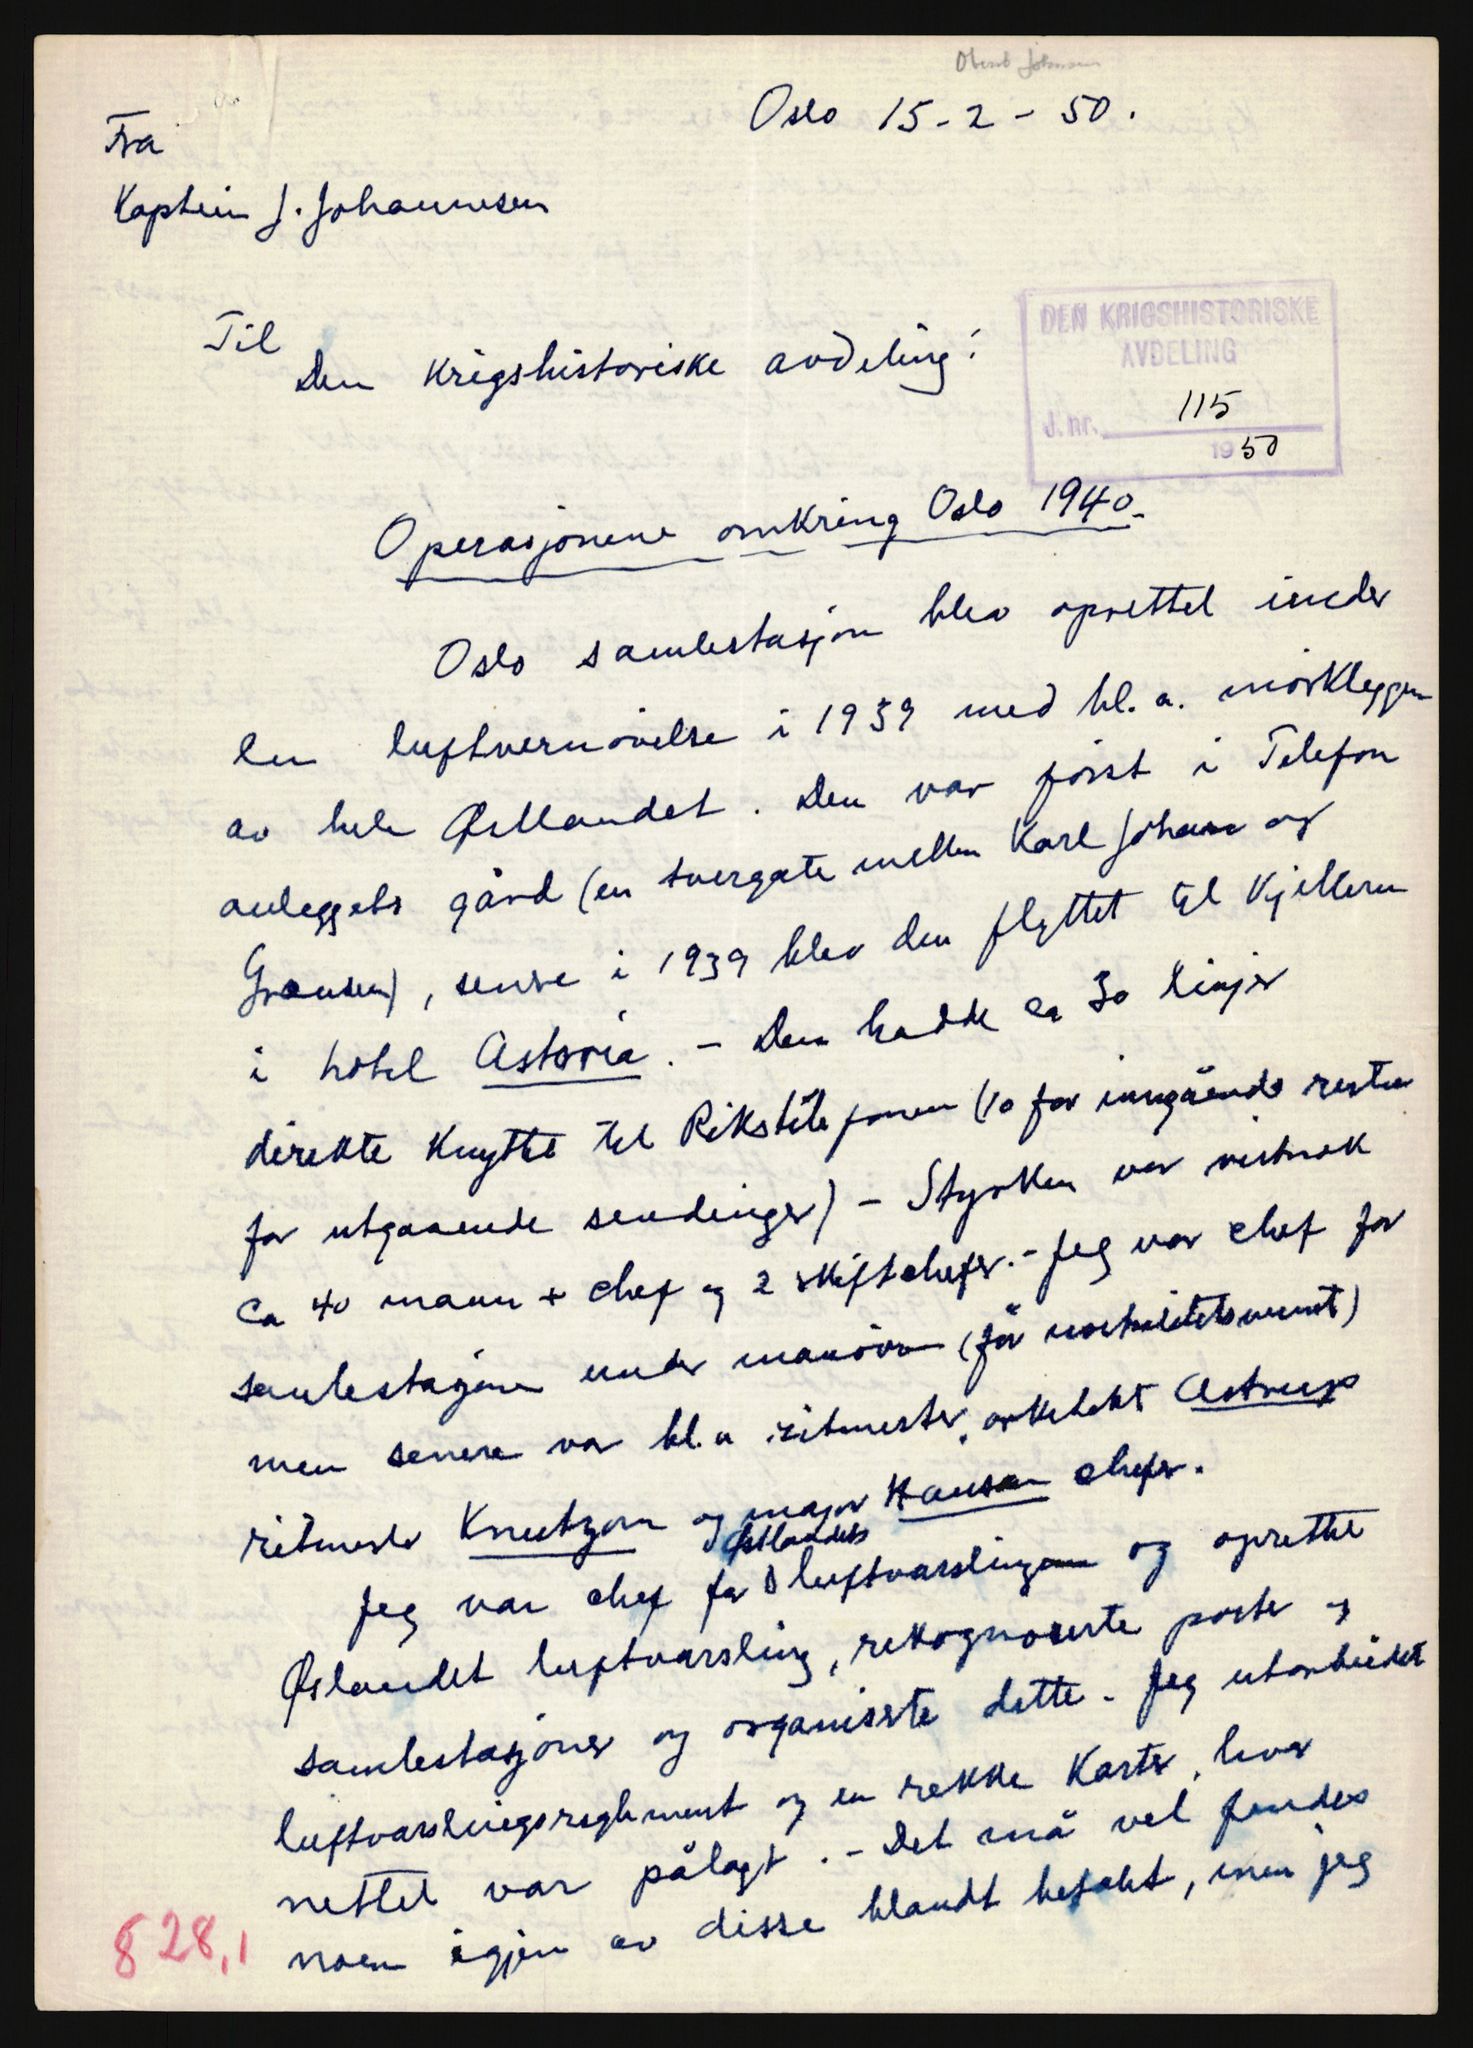 Oslo 15-2-50.
Fra
Kaptein J. Johannesen
DEN KRIGSHISTORISKE
AVDELING
J. nr. 115
1950
Til
Den Krigshistoriske avdeling!
Operasjonene omkring Oslo 1940.
Oslo samlestasjon blev oprettet under
en luftvernøvelse i 1939 med bl. a. mørkleggen
av hele Østlandet. Den var først i Telefon
anleggets gård (en tvergate mellem Karl Johan og
Grensen), senere i 1939 blev den flyttet til Kjelleren
i hotel Astoria. - Den hadde ca 30 linjer
direkte knyttet til Rikstelefonen (10 for inngående resten
for utgaaende sendinger) - Styrken var vistnok
ca 40 mann + chef og 2 skiftchefer. - Jeg var chef for
samlestasjonen under manøvren (før nøitralitetsvernet)
men senere var bl.a ritmester, arkitekt Astrup
ritmester Knutzon og major Hansen chefer.
Østlandets
Jeg var chef for luftvarslingen og oprettet
Øslandet luftvarsling, rekognoserte poster og
samlestasjoner og organiserte dette. Jeg utarbeidet
luftvarslingsreglement og en rekke Karter, hvor
nettet var pålagt. - Det må vel finnes
noen igjen av disse blandt befalet, men jeg
828,1